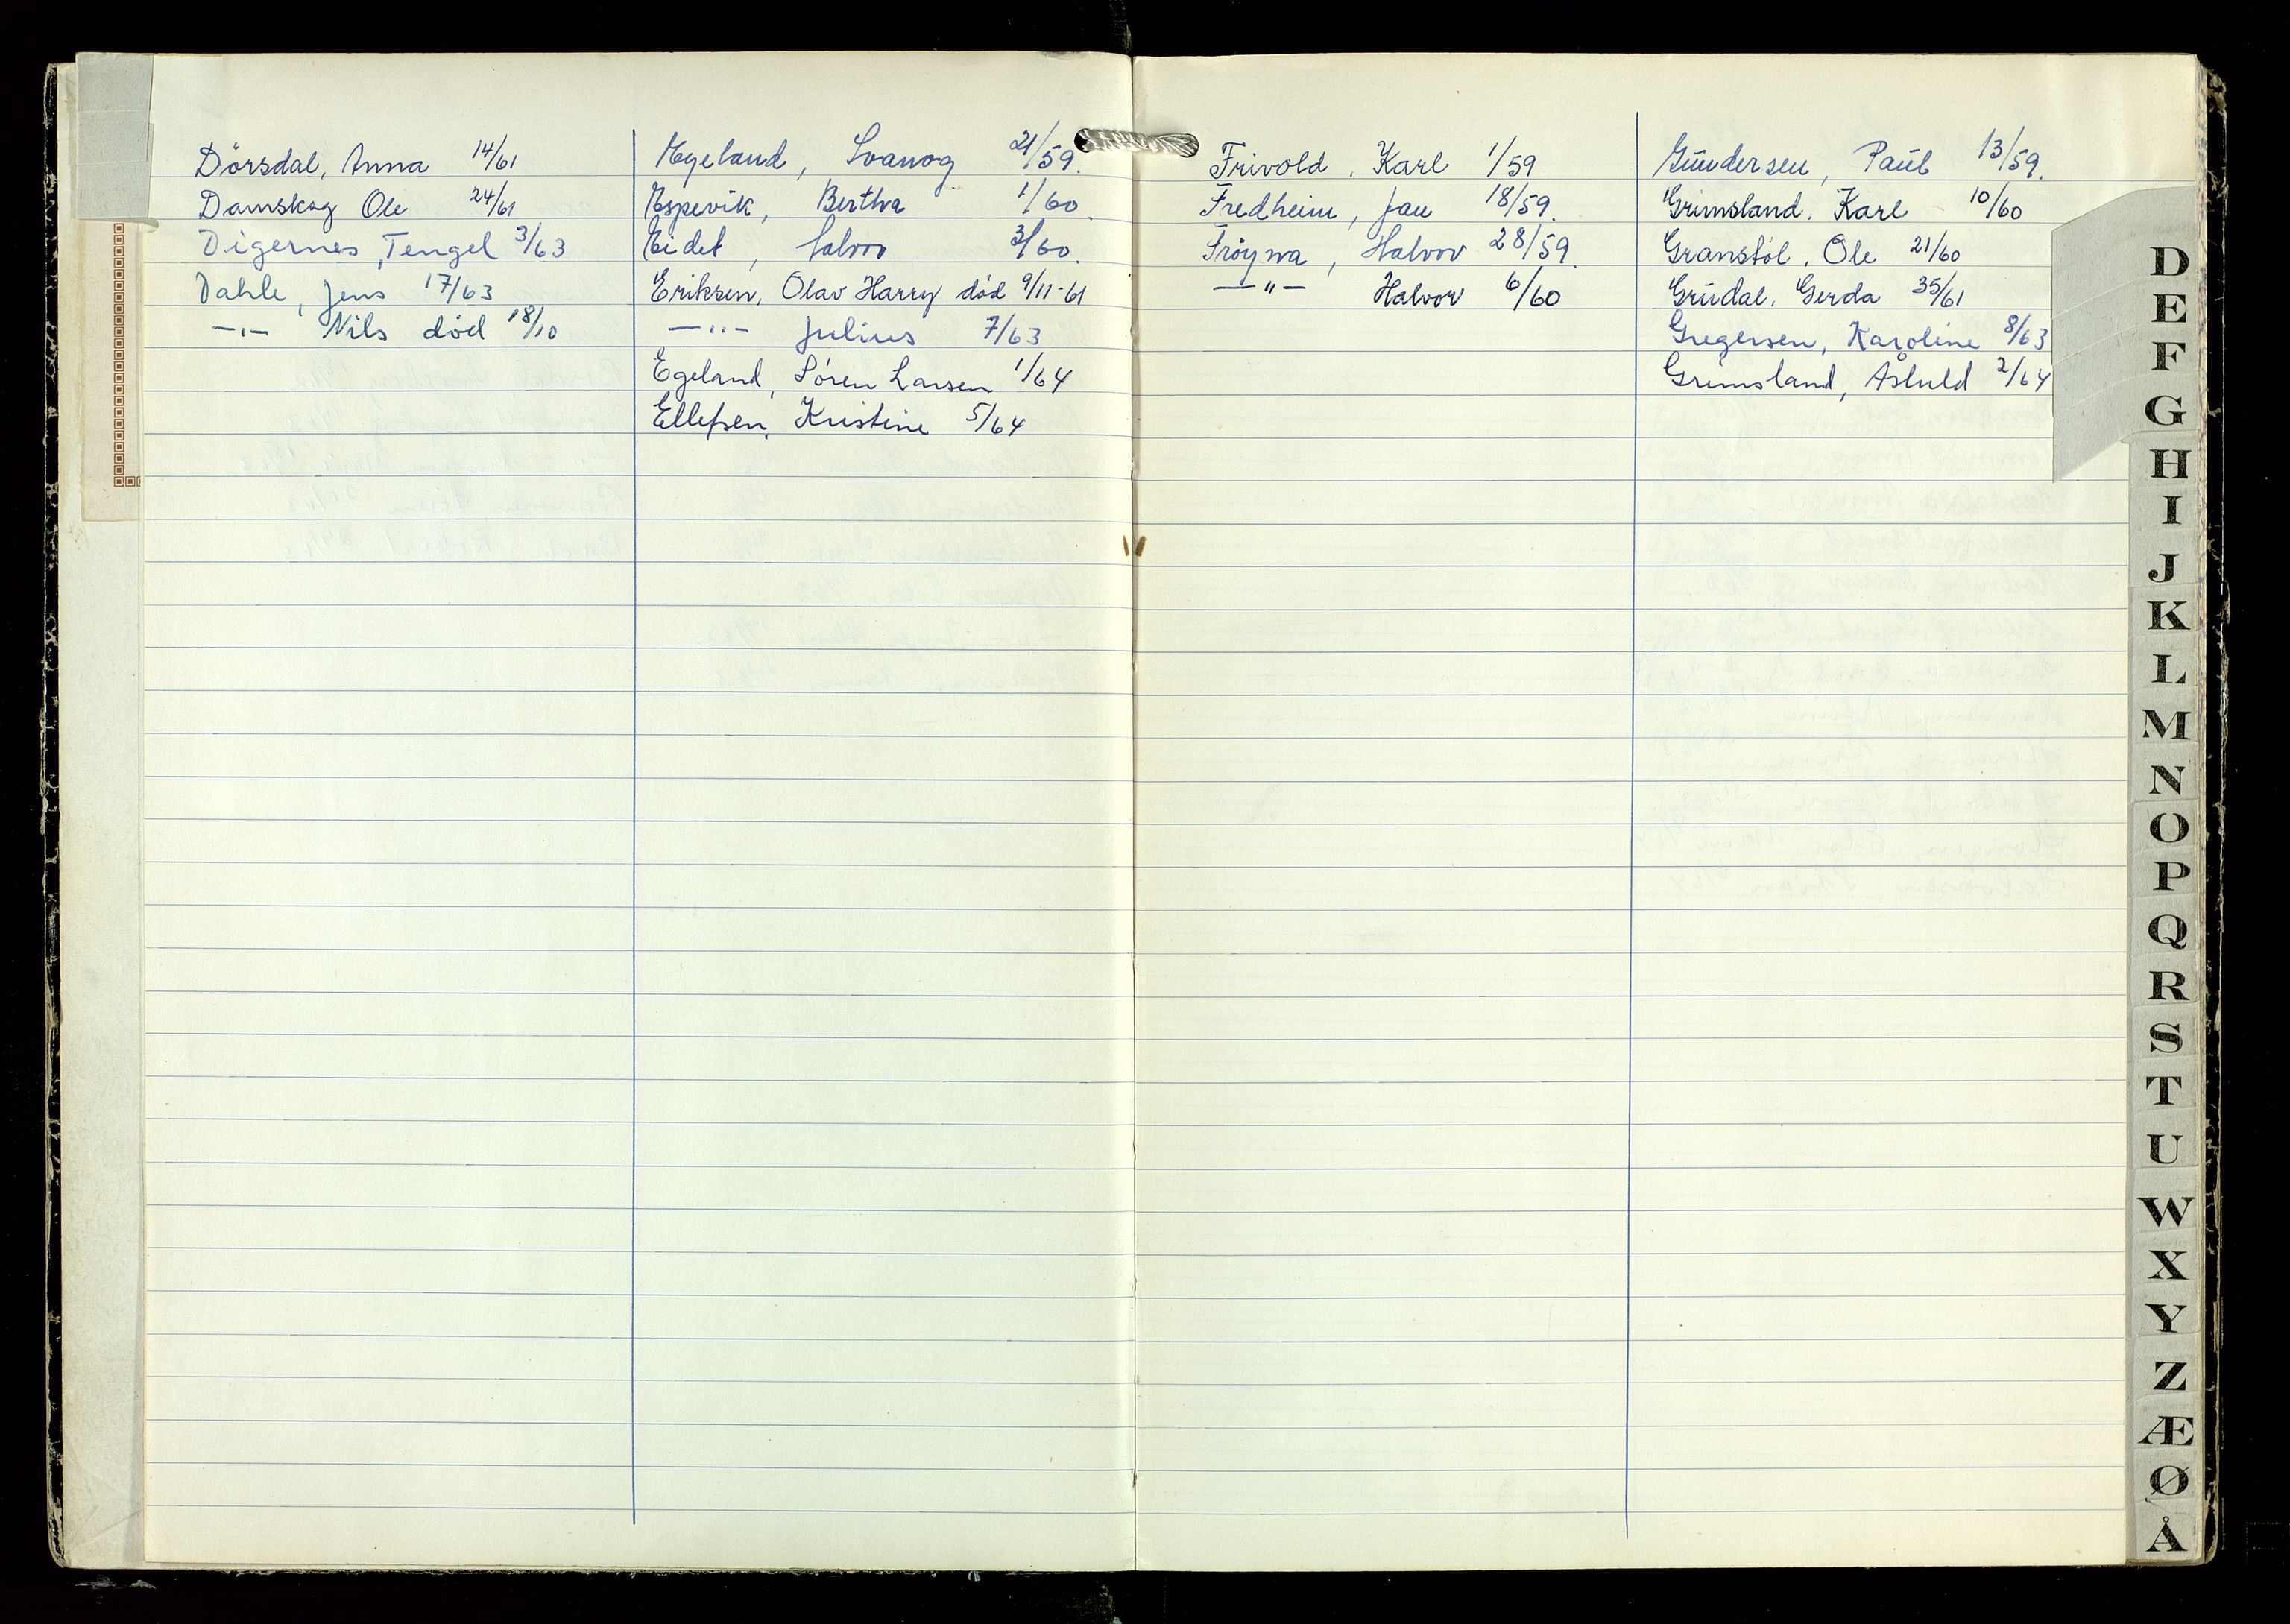 Dörsdal, Anna 14/61
Damskog Ole 24/61
Digernes, Tengel 3/63
Dahle, Jens 17/63
—"— Nils död 18/10
Egeland, Svanog 21/59.
Espevik, Bertha 1/60.
Eidet, Halvor 3/60.
Eriksen, Olav Harry död 9/11-61
—"— Julius 7/63
Egeland, Sören Larsen 1/64
Ellefsen, Kristine 5/64
Frivold, Karl 1/59
Fredheim, Jan 18/59.
Fröyna, Halvor 28/59.
—"— Halvor 6/60
Gundersen, Paul 13/59.
Grimsland, Karl 10/60
Granstöl, Ole 21/60
Grudal, Gerda 35/61
Gregersen, Karoline 8/63
Grimsland, Åshuld 2/64
D
E
F
G
H
I
J
K
L
M
N
O
P
Q
R
S
T
U
W
X
Y
Z
Æ
Ø
Å